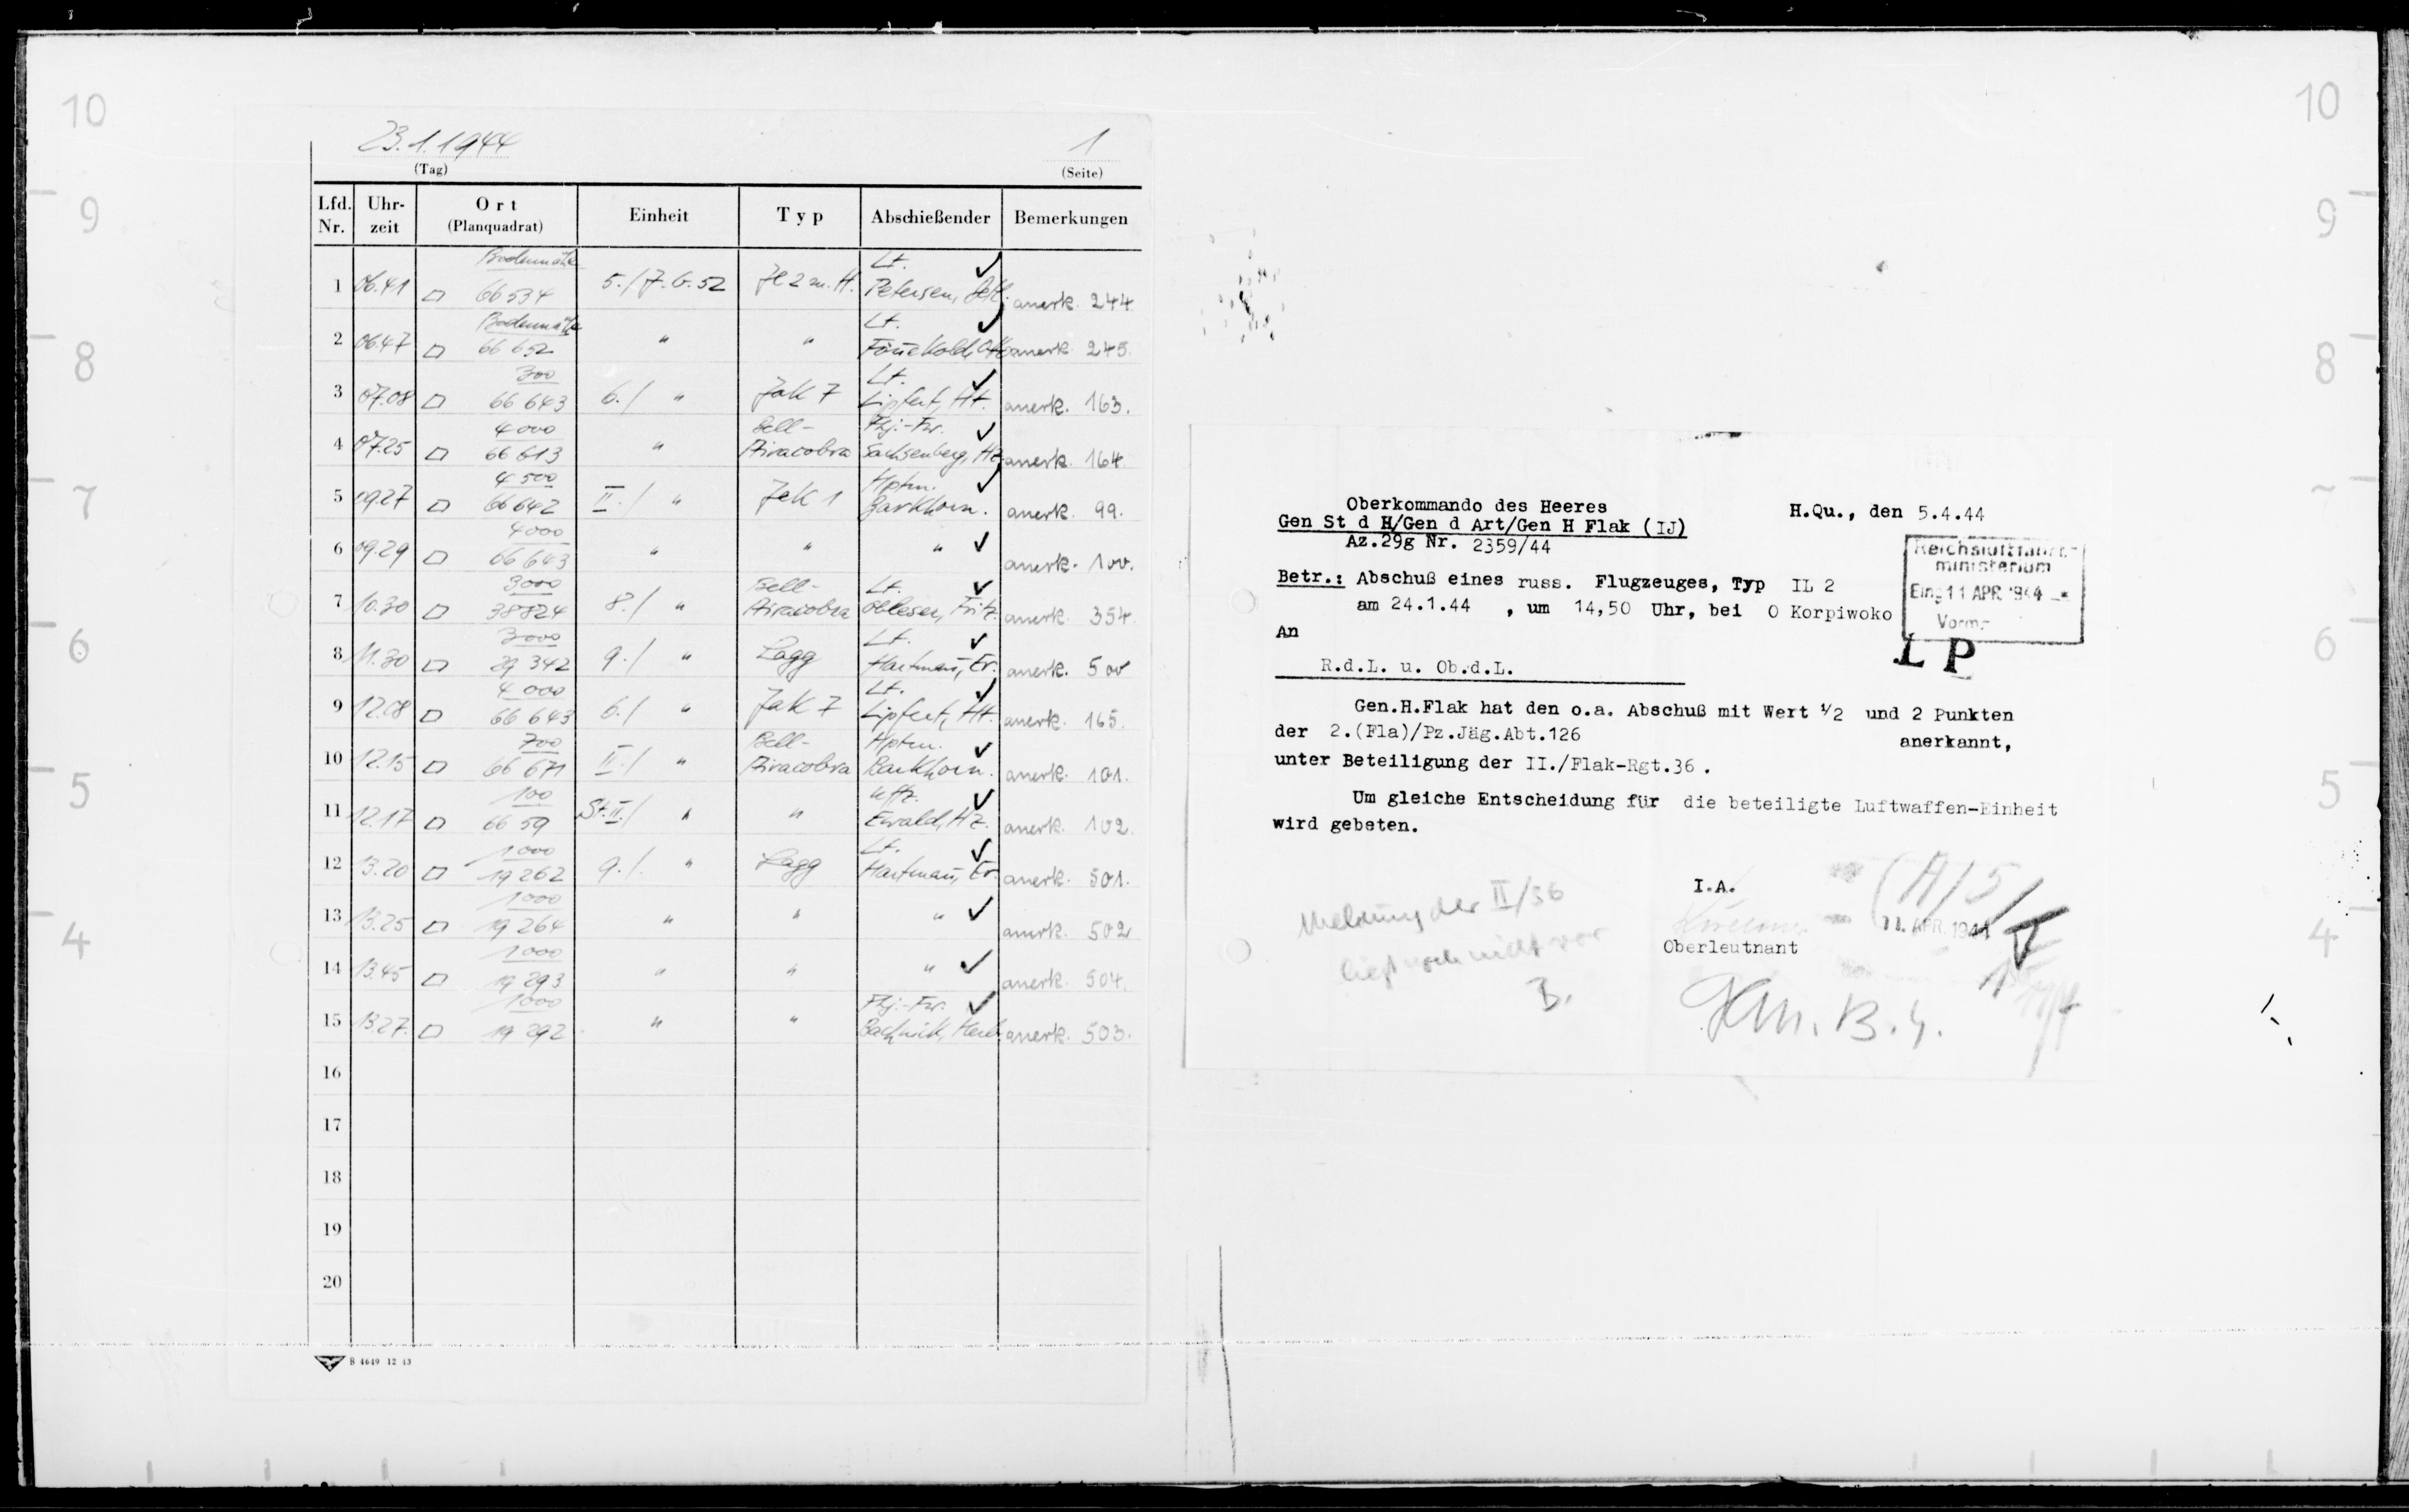 10
10
9
9
8
8
7
6
6
5
5
4
4
23.1.1944
1
(Tag)
(Seite)
Lfd. Nr. Uhr-zeit Ort (Planquadrat) Einheit Typ Abschießender Bemerkungen
Bodennähe Lt. ✓
1 06.41 □ 66 534 5./J.G.52 Jl 2 m.H. Petersen, anerk. 244
Bodennähe Lt. ✓
2 06.47 □ 66 652 " " Fönnekold, Otto anerk. 245.
300 Lt. ✓
3 07.08 □ 66 643 6./ " Jak 7 Lipfert, Ht. anerk. 163.
4000 Bell- Fhj.-Fw. ✓
4 07.25 □ 66 613 " Airacobra Sachsenberg, Hz. anerk. 164.
4500 Hptm. ✓
5 09.27 □ 66 642 II./ " Jak 1 Barkhorn. anerk. 99.
4000
6 09.29 □ 66 643 " " " ✓ anerk. 100.
3000 Bell- Lt. ✓
7 10.30 □ 38 824 8./ " Airacobra Obleser, Fritz. anerk. 354.
3000 Lt. ✓
8 11.30 □ 29 342 9./ " Lagg Hartmann, Er. anerk. 500
4000 Lt. ✓
9 12.08 □ 66 643 6./ " Jak 7 Lipfert, Ht. anerk. 165.
700 Bell- Hptm. ✓
10 12.15 □ 66 671 II./ " Airacobra Barkhorn. anerk. 101.
100 Uffz. ✓
11 12.17 □ 66 59 St.II./ " " Ewald, Hz. anerk. 102.
1000 Lt. ✓
12 13.20 □ 19 262 9./. " Lagg Hartmann, Er. anerk. 501.
1000
13 13.25 □ 19 264 " " " ✓ anerk. 502
1000
14 13.45 □ 19 293 " " " ✓ anerk. 504.
1000 Fhj.-Fw. ✓
15 13.27. □ 19 292 " " Bachnick, Herb. anerk. 503.
16
17
18
19
20
B 4649 12 43
Oberkommando des Heeres
H.Qu., den 5.4.44
Gen St d H/Gen d Art/Gen H Flak (IJ)
Az.29g Nr. 2359/44
Reichsluftfahrt-
ministerium
Eing 11 APR. 1944
Vorm.-
L P
Betr.: Abschuß eines russ. Flugzeuges, Typ IL 2
am 24.1.44 , um 14,50 Uhr, bei O Korpiwoko
An
R.d.L. u. Ob.d.L.
Gen.H.Flak hat den o.a. Abschuß mit Wert 1/2 und 2 Punkten
der 2.(Fla)/Pz.Jäg.Abt.126
anerkannt,
unter Beteiligung der II./Flak-Rgt.36 .
Um gleiche Entscheidung für die beteiligte Luftwaffen-Einheit
wird gebeten.
I.A.
Oberleutnant
11. APR. 1944
Meldung der II/36
liegt noch nicht vor
B.